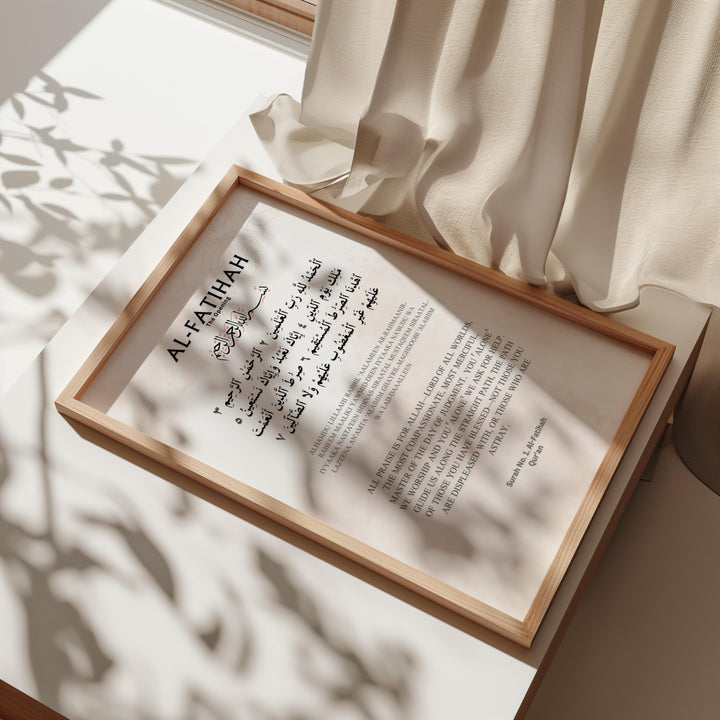 AL-FATIHAH
The Opening
بِسْمِ اللَّهِ الرَّحْمَٰنِ الرَّحِيمِ
ٱلْحَمْدُ لِلَّهِ رَبِّ ٱلْعَـٰلَمِينَ ٢ ٱلرَّحْمَـٰنِ ٱلرَّحِيمِ ٣
مَـٰلِكِ يَوْمِ ٱلدِّينِ ٤ إِيَّاكَ نَعْبُدُ وَإِيَّاكَ نَسْتَعِينُ ٥
ٱهْدِنَا ٱلصِّرَٰطَ ٱلْمُسْتَقِيمَ ٦ صِرَٰطَ ٱلَّذِينَ أَنْعَمْتَ
عَلَيْهِمْ غَيْرِ ٱلْمَغْضُوبِ عَلَيْهِمْ وَلَا ٱلضَّآلِّينَ ٧
ALHAMDU LILLAAHI RABBIL 'AALAMEEN AR-RAHMAANIR-
RAHEEM MAALIKI YAWMID-DEEN IYYAAKA NA'BUDU WA
IYYAAKA NASTA'EEN IHDINAS-SIRAATAL-MUSTAQEEM SIRAATAL-
LAZEENA AN'AMTA 'ALAIHIM GHAYRIL-MAGHDOOBI 'ALAIHIM
WA LAD-DAAALLEEN
ALL PRAISE IS FOR ALLAH—LORD OF ALL WORLDS,
THE MOST COMPASSIONATE, MOST MERCIFUL,
MASTER OF THE DAY OF JUDGMENT. YOU ˹ALONE˺
WE WORSHIP AND YOU ˹ALONE˺ WE ASK FOR HELP.
GUIDE US ALONG THE STRAIGHT PATH, THE PATH
OF THOSE YOU HAVE BLESSED—NOT THOSE YOU
ARE DISPLEASED WITH, OR THOSE WHO ARE
ASTRAY.
Surah No. 1. Al-Fatihah
Qur'an